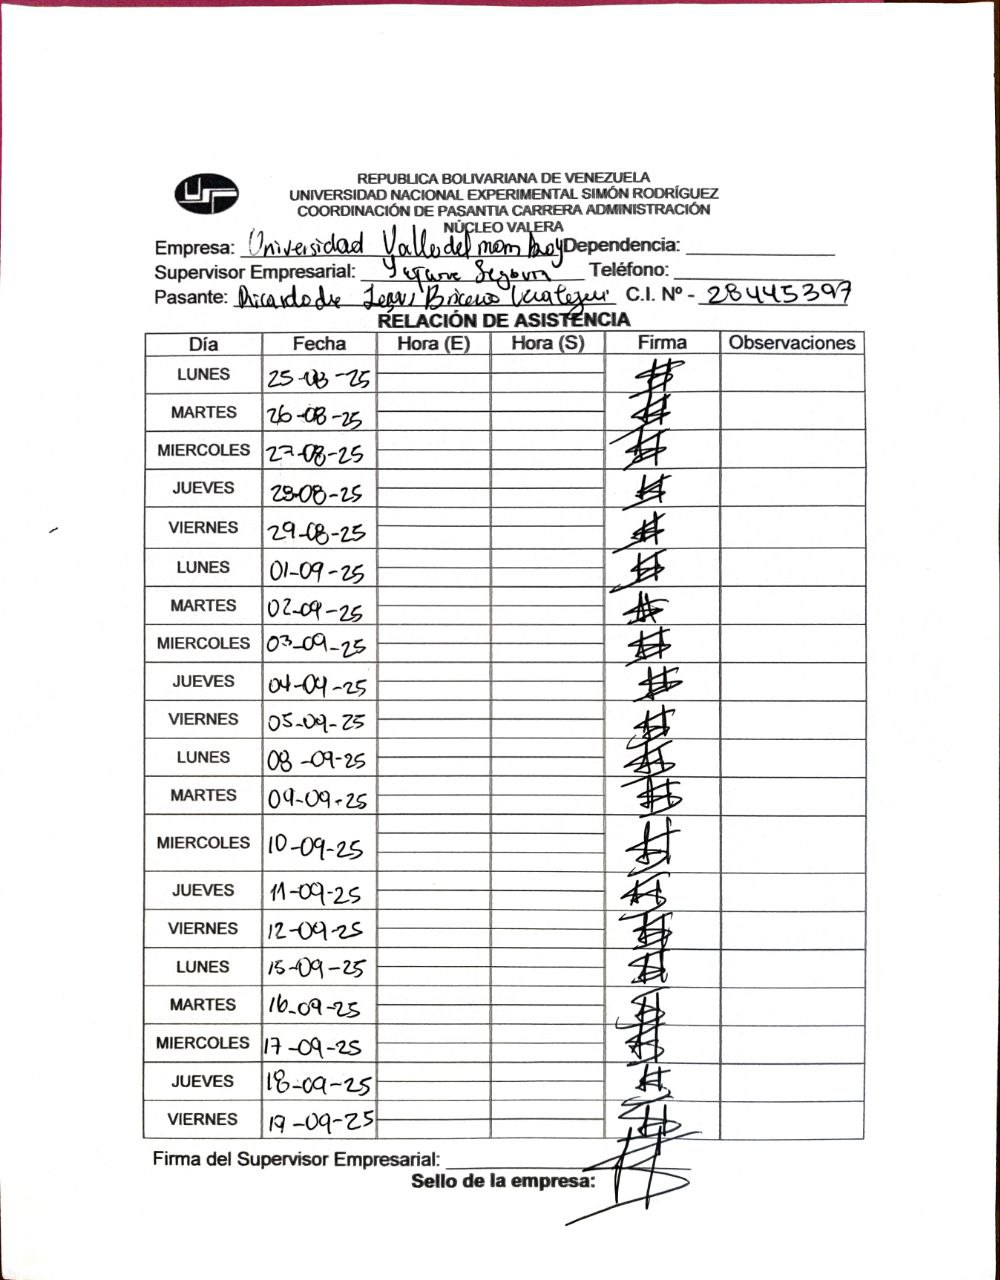 REPUBLICA BOLIVARIANA DE VENEZUELA
UNIVERSIDAD NACIONAL EXPERIMENTAL SIMÓN RODRÍGUEZ
COORDINACIÓN DE PASANTIA CARRERA ADMINISTRACIÓN
NÚCLEO VALERA
Empresa: Universidad Valle del momboy Dependencia:
Supervisor Empresarial: Segovia Teléfono:
Pasante: Ricardo de Jesus Briceno C.I. Nº - 28445397
RELACIÓN DE ASISTENCIA
Día Fecha Hora (E) Hora (S) Firma Observaciones
LUNES 25-08-25
MARTES 26-08-25
MIERCOLES 27-08-25
JUEVES 28-08-25
VIERNES 29-08-25
LUNES 01-09-25
MARTES 02-09-25
MIERCOLES 03-09-25
JUEVES 04-09-25
VIERNES 05-09-25
LUNES 08-09-25
MARTES 09-09-25
MIERCOLES 10-09-25
JUEVES 11-09-25
VIERNES 12-09-25
LUNES 15-09-25
MARTES 16-09-25
MIERCOLES 17-09-25
JUEVES 18-09-25
VIERNES 19-09-25
Firma del Supervisor Empresarial:
Sello de la empresa: